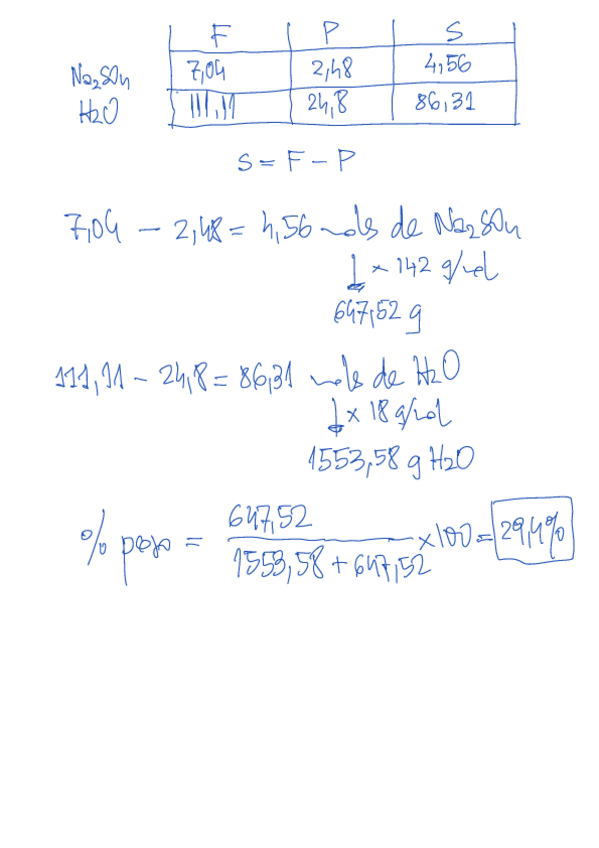 F P S
Na₂SO₄ 7,04 2,48 4,56
H₂O 111,11 24,8 86,31
S = F - P
7,04 - 2,48 = 4,56 mols de Na₂SO₄
↓ × 142 g/mol
647,52 g
111,11 - 24,8 = 86,31 mols de H₂O
↓ × 18 g/mol
1553,58 g H₂O
% peso = 647,52 / 1553,58 + 647,52 × 100 = 29,4%